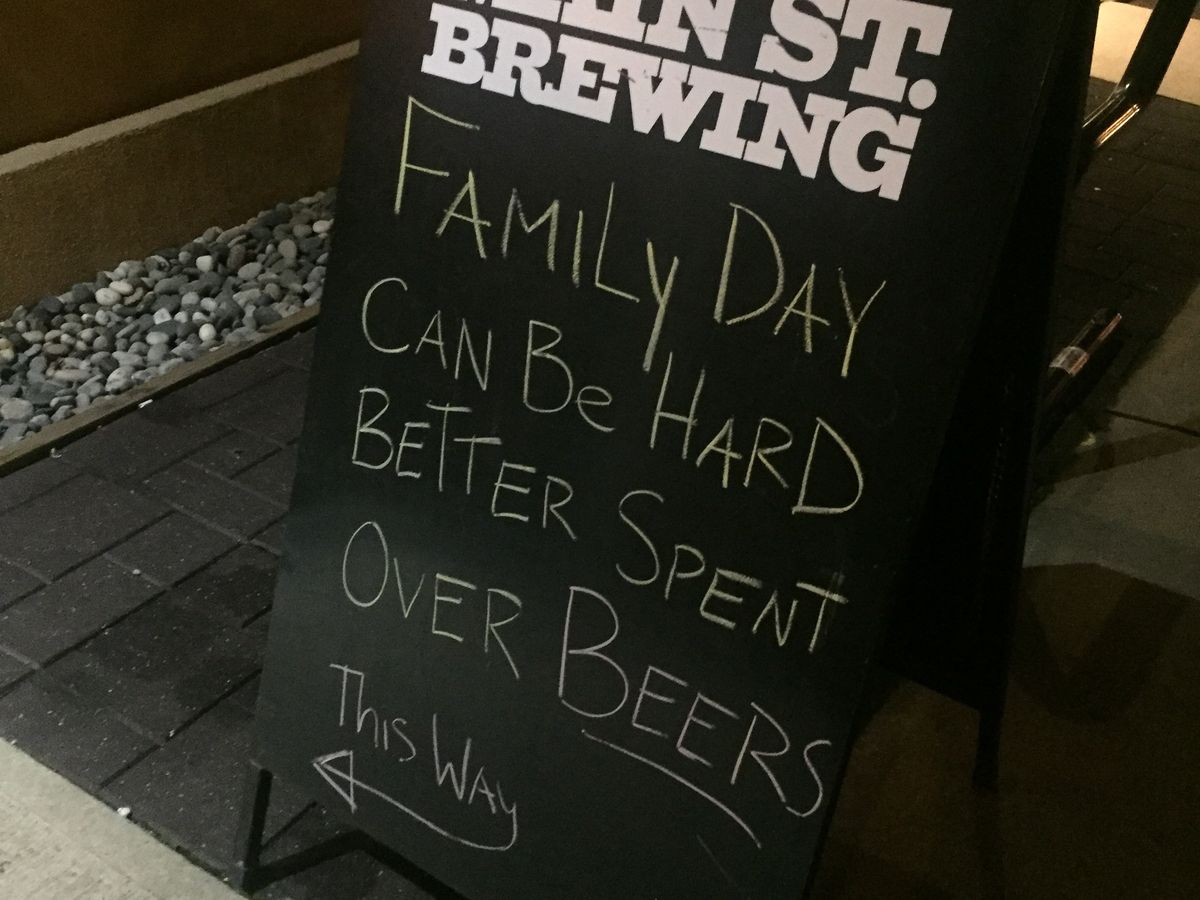 MAIN ST.
BREWING
FAMILY DAY
CAN Be HARD
BETTER SPENT
OVER BEERS
This WAy